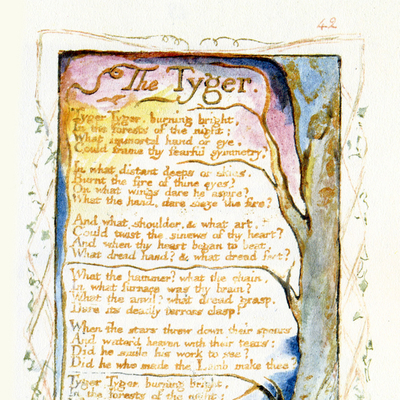 42
The Tyger.
Tyger Tyger, burning bright,
In the forests of the night;
What immortal hand or eye,
Could frame thy fearful symmetry?
In what distant deeps or skies,
Burnt the fire of thine eyes?
On what wings dare he aspire?
What the hand, dare sieze the fire?
And what shoulder, & what art,
Could twist the sinews of thy heart?
And when thy heart began to beat,
What dread hand? & what dread feet?
What the hammer? what the chain,
In what furnace was thy brain?
What the anvil? what dread grasp,
Dare its deadly terrors clasp?
When the stars threw down their spears
And water'd heaven with their tears:
Did he smile his work to see?
Did he who made the Lamb make thee?
Tyger Tyger burning bright,
In the forests of the night: